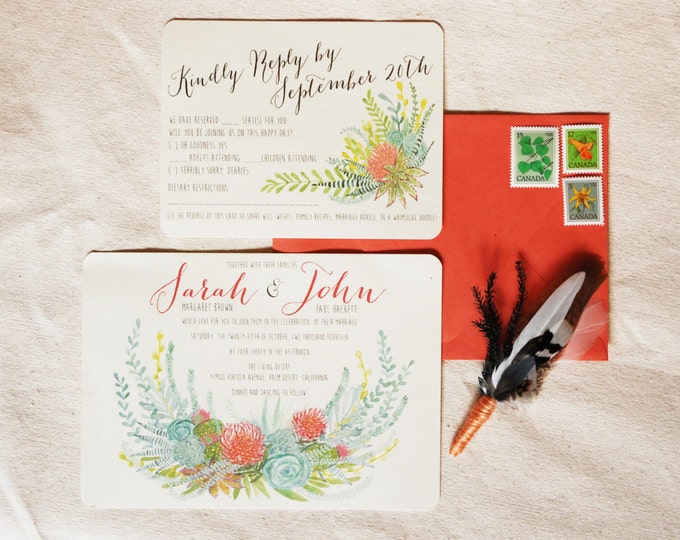 Kindly Reply by
September 20th
WE HAVE RESERVED ____ SEAT(S) FOR YOU
WILL YOU BE JOINING US ON THIS HAPPY DAY?
( ) OH GOODNESS YES
____ ADULTS ATTENDING ____ CHILDREN ATTENDING
( ) TERRIBLY SORRY, DEARIES
DIETARY RESTRICTIONS
USE THE REVERSE OF THIS CARD TO SHARE WELL-WISHES, FAMILY RECIPES, MARRIAGE ADVICE, OR A WHIMSICAL DOODLE!
15
CANADA
12
CANADA
CANADA
TOGETHER WITH THEIR FAMILIES
Sarah & John
MARGARET BROWN PAUL HACKETT
WOULD LOVE FOR YOU TO JOIN THEM IN THE CELEBRATION OF THEIR MARRIAGE
SATURDAY, THE TWENTY-FIFTH OF OCTOBER, TWO THOUSAND FOURTEEN
AT FOUR THIRTY IN THE AFTERNOON
THE LIVING DESERT
47900 PORTOLA AVENUE, PALM DESERT, CALIFORNIA
DINNER AND DANCING TO FOLLOW